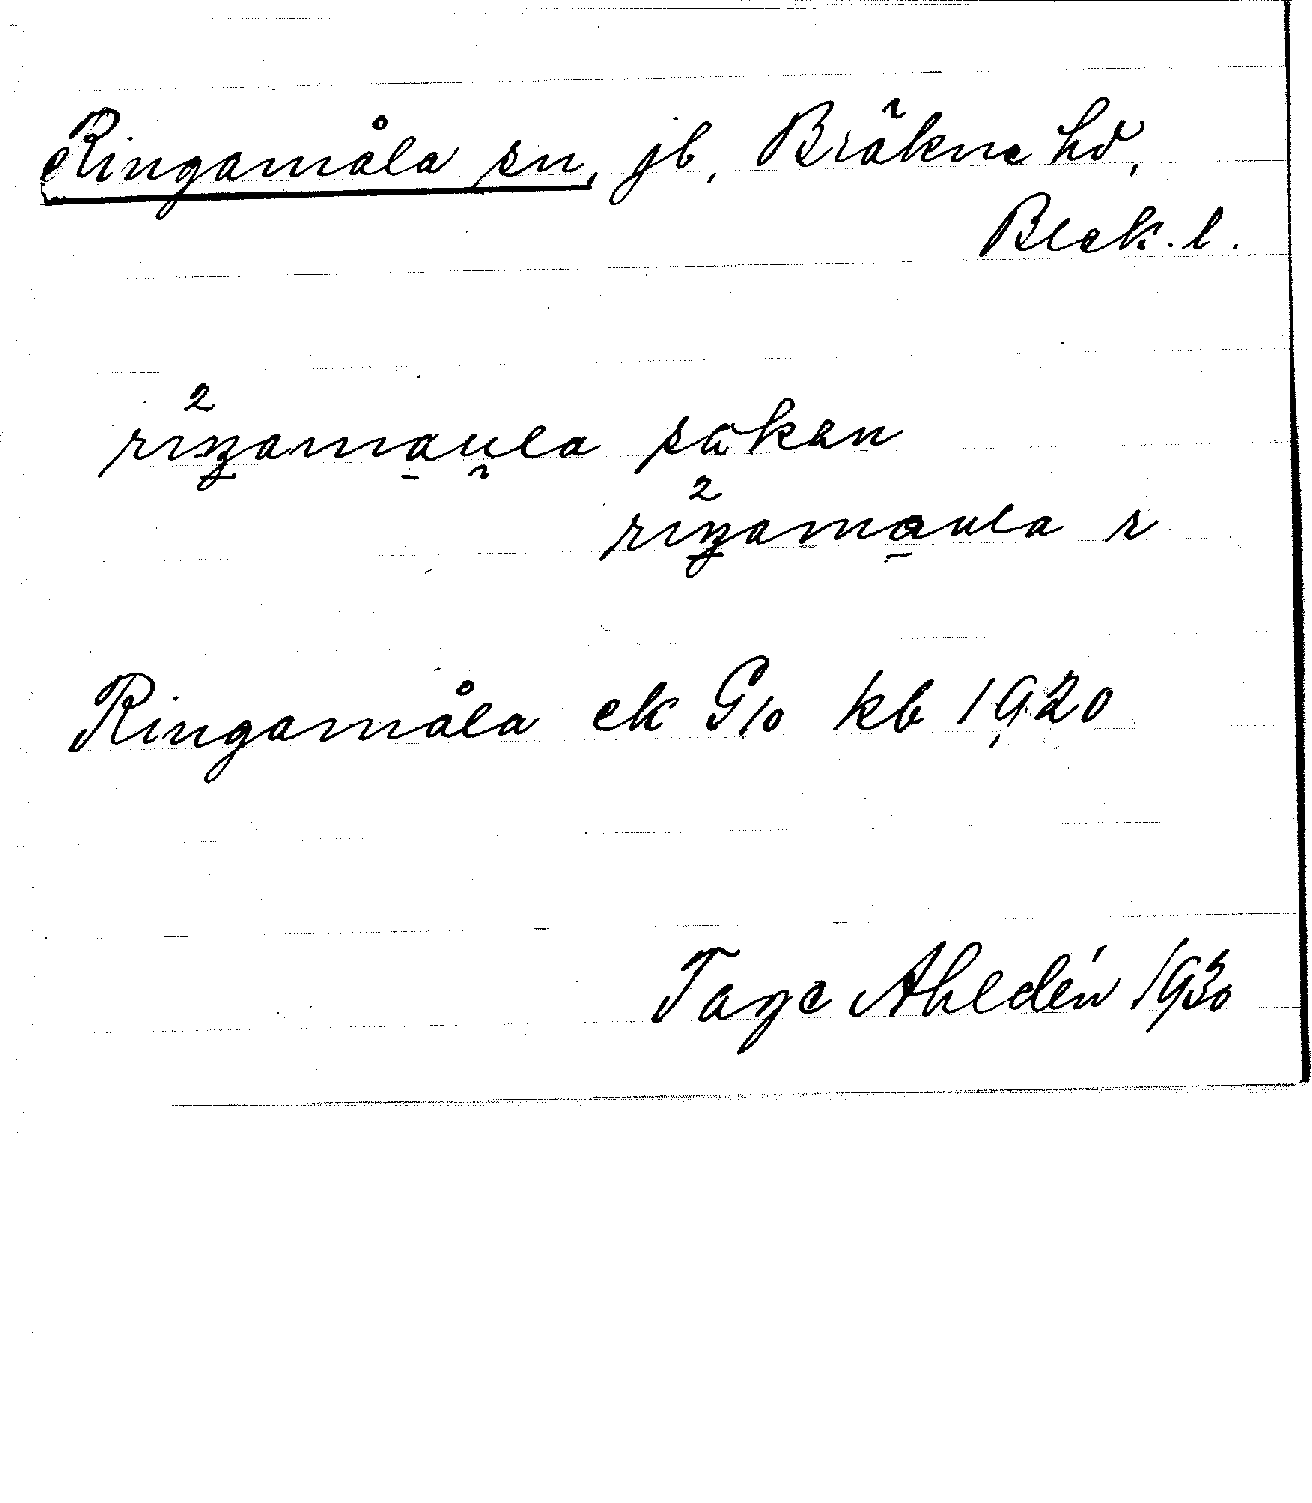 Ringamåla sn, jb, Bräkne hd,
Blek. l.
2
riŋamau̯la sokən
2
riŋamaula r
Ringamåla ek G10 kb 1920
Tage Ahldén 1930